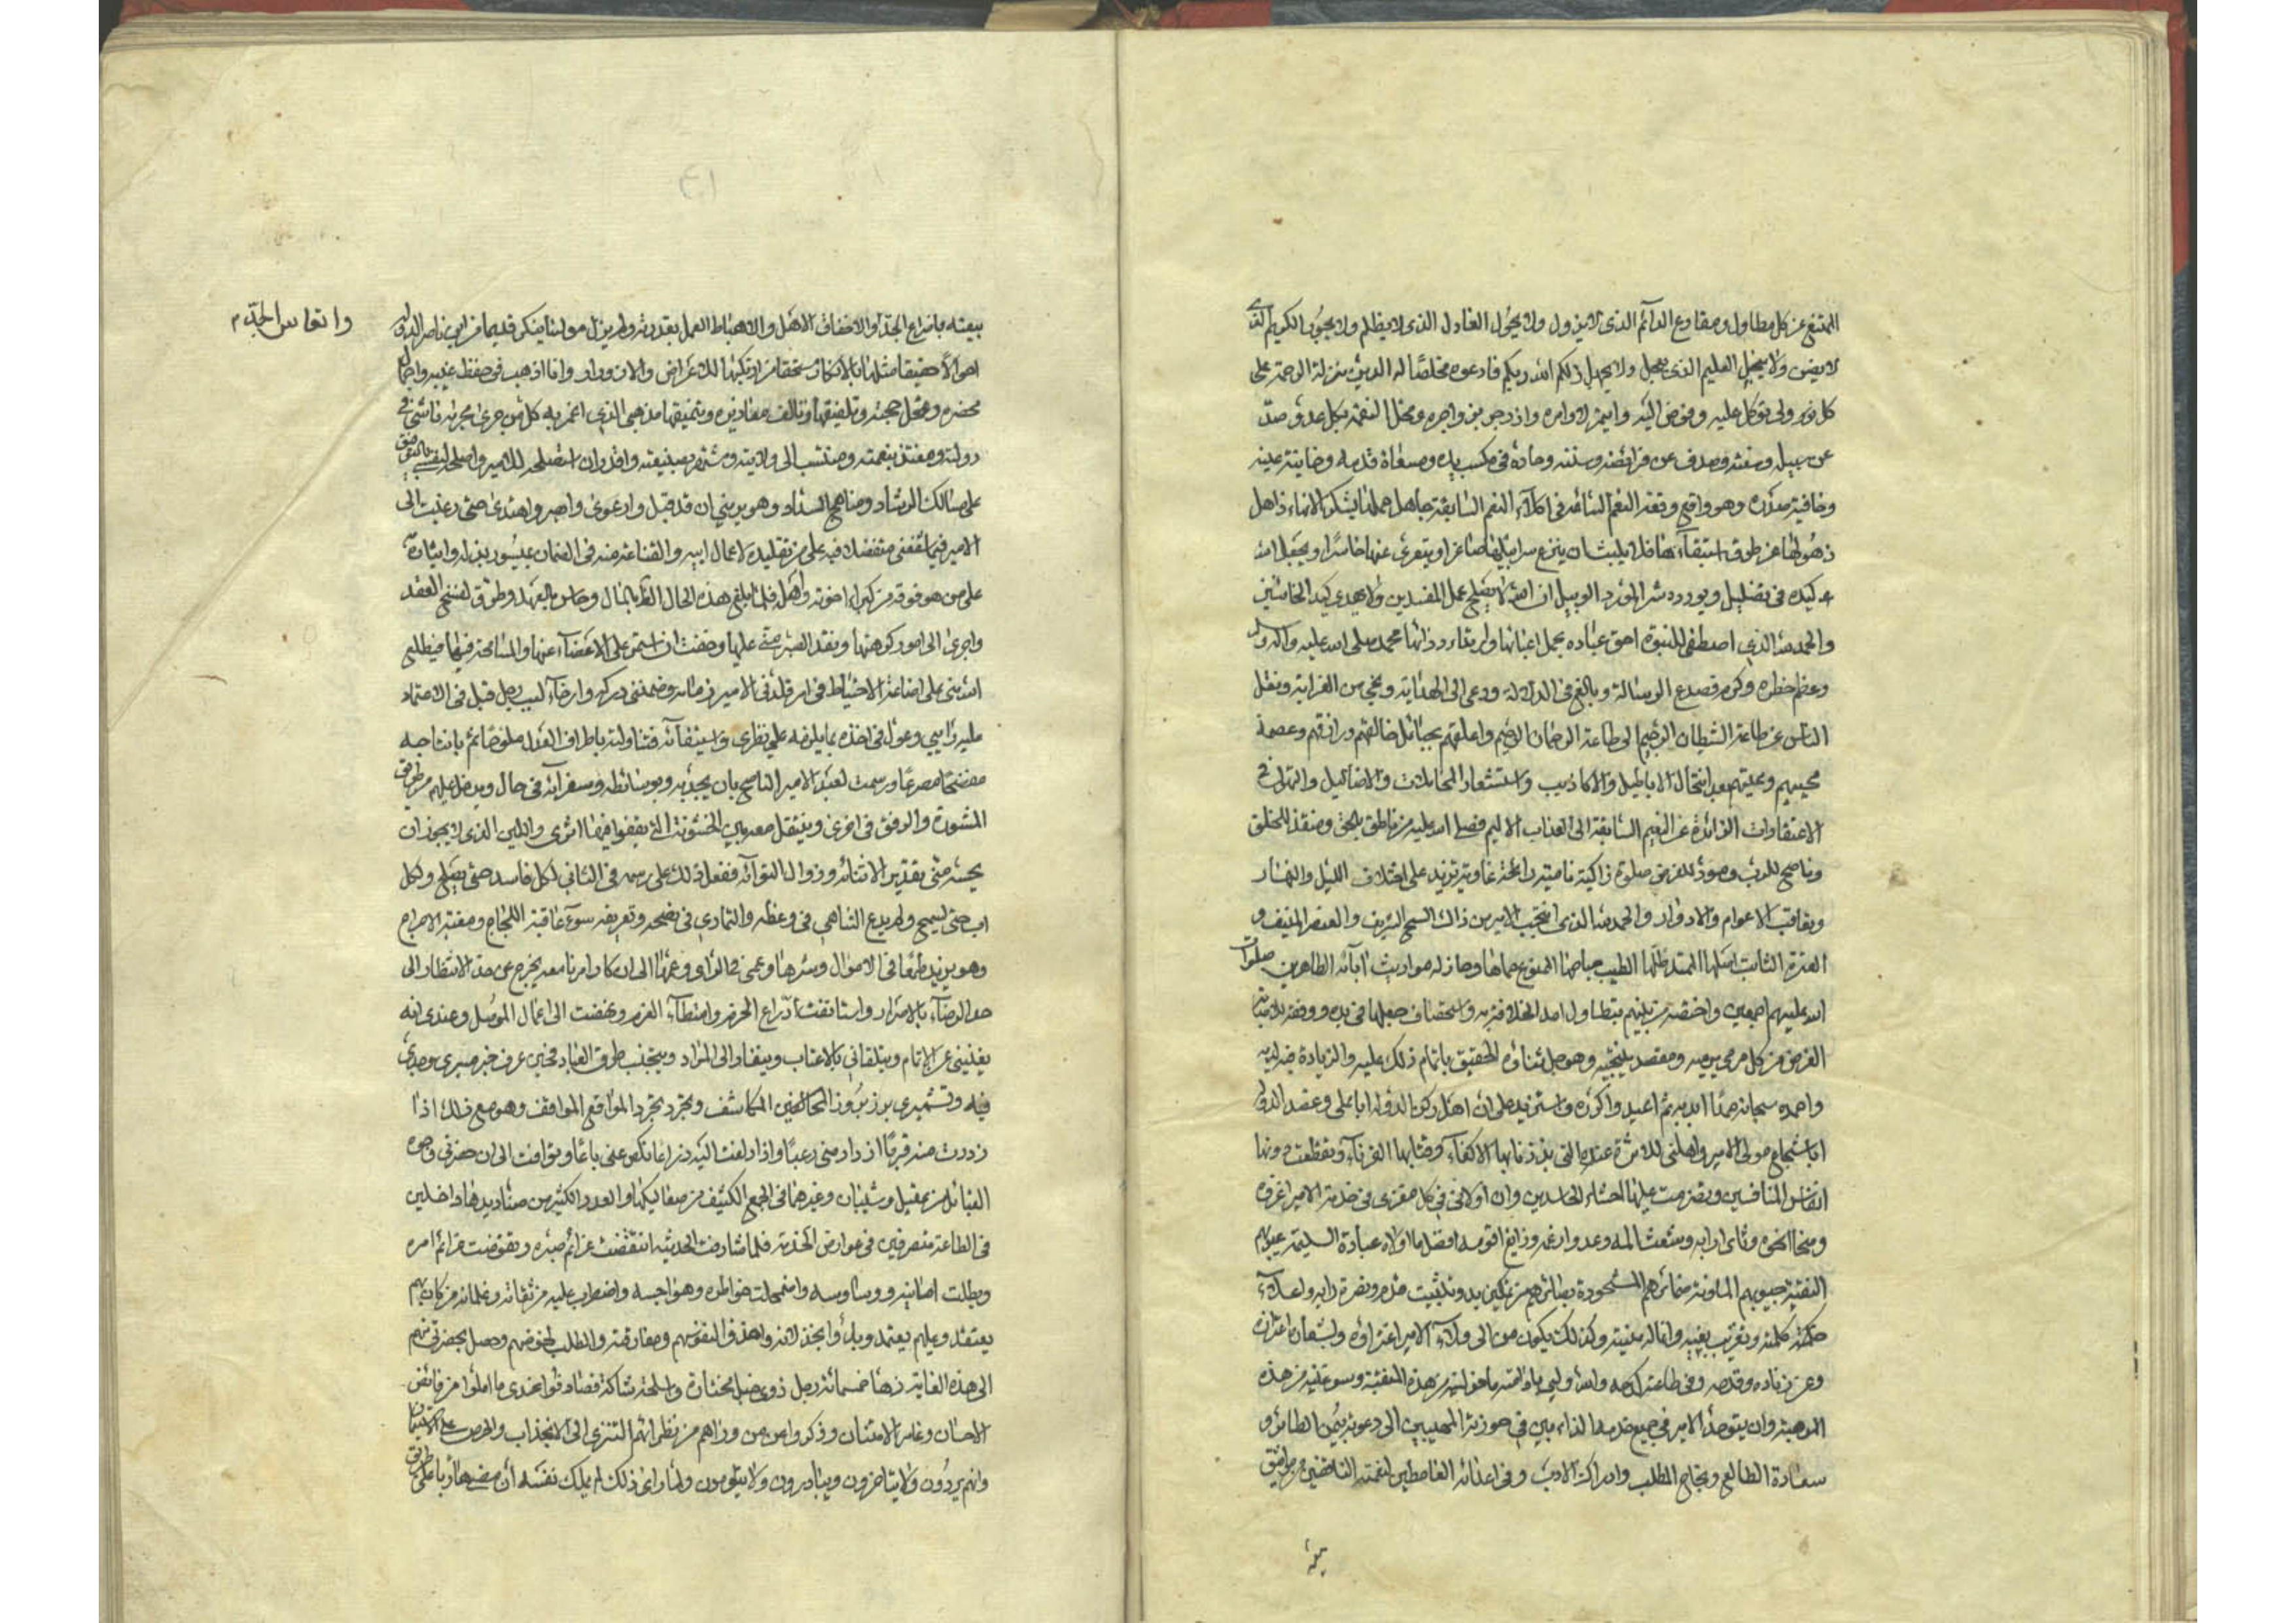 الممتنع عن كل مطاول ومقارع الدائم الذي لا يزول ولا يحول العادل الذي لا يظلم ولا يجور الكريم الذي
لا يضن ولا يبخل الحليم الذي لا يعجل ولا يجهل ذلكم الله ربكم فادعوه مخلصًا له الدين منزل الرحمة على
كل ولي توكل عليه وفوض اليه وايتمر لاوامره وازدجر بزواجره ومحل النقمة بكل عدو صد
عن سبيله وسنته وصدف عن فرائضه وسننه وحاده في مكسب يده ومسعاة قدمه وخاينة عينه
وخافية صدره وهو واقع رتعة النعم السائمة في اكلاء النعم السابغة جاهل جهلها بشكر الائها ذاهل
ذهولها عن طرق استبقائها فلا يلبث ان ينزع سرابيلها صاغرا ويتعرى عنها خاسرا ويجعل الله
كيده في تضليل ويورده شر المورد الوبيل ان الله لا يصلح عمل المفسدين ولا يهدي كيد الخائنين
والحمد لله الذي اصطفى للنبوة احق عباده بحمل اعبائها وارتداء ردائها محمد صلى الله عليه وآله وسلم
وعظم خطره وكرم فصدع بالرسالة وبالغ في الدلالة ودعى الى الهداية ونجى من الغواية ونقل
الناس عن طاعة الشيطان الرجيم الى طاعة الرحمان الرحيم واعلقهم بحبائل خالقهم ورازقهم وعصمة
محييهم ومميتهم بعد انتحال الاباطيل والاكاذيب واستشعار المحالات والاضاليل والتهوك في
الاعتقادات الذائدة عن النعيم السائقة الى العذاب الاليم فصلى الله عليه من ناطق بالحق ومنقذ للخلق
وناصح للرب ومود للفرض صلوة زاكية نامية رايحة غادية تزيد على اختلاف الليل والنهار
وتعاقب الاعوام والادوار والحمد لله الذي انتخب الامير من ذلك السنخ الشريف والعنصر المنيف و
العترة الثابت اصلها الممتد ظلها الطيب جناها الممنوع حماها وحاز له مواريث آبائه الطاهرين صلوات
الله عليهم اجمعين واختصه من بينهم بتطاول امد الخلافة واستحصاف حبلها في يده ووفقه لاصابة
الغرض من كل مرمى يرميه ومقصد ينتحيه وهو جل ثناؤه الحقيق باتمام ذلك عليه والزيادة فيه لديه
واحمده سبحانه حمدا ابديه ثم اعيده واكرره واستزيده على ان اهل ركن الدولة ابا علي وعضد الدولة
ابا شجاع مولى الامير واهلني للاثرة عنده التي بذذنا بها الاكفاء وفتنا بها القرناء وتقطعت دونها
انفاس المنافسين وتضرمت عليها احشاء الحاسدين وان اولاني في كل مغزى في خدمة الامير اغزوه
ومنحى انحوه وثاى ارابه وشعث المه وعدو ارغمه وزايغ اقومه افضل ما اولاه عباده السليمة غيوبهم
النقية جيوبهم المامونة ضمائرهم المشحوذة بصائرهم من تمكين يد وتثبيت قدم ونصرة راية واعلاء
كلمة وتقريب بغية وانالة امنية وكذلك يكون من الى ولاء الامير اعتزاؤه وبشعاره اعتزازه
وعن زناده قدحه وفي طاعته كدحه والله ولي بادامة ما خولنيه من هذه المنقبة وسوغنيه من هذه
الموهبة وان يتوحد الامير في جميع خدمه الذابين عن حوزته المجيبين الى دعوته بيمن الطائر و
سعادة الطالع ونجاح المطلب وادراك الارب وفي اعدائه الغامطين لنعمته الناقضين مواثيق
بيعته باضراع الخد واخفاق الامل واحباط العمل بقدرته ولم يزل مولينا ينكر قديما من ابن ناصر الدولة
وا تعاس الجد م
احوالا حقيقا مثلها بالانكار مستحقا من ارتكبها للاعراض والازورار وانا اذهب في حفظ غيبه واجمال
محضره وتمحل حججه وتلفيقها وتاليف معاذيره وتنميقها مذهبي الذي اعم به كل من جرى مجراه ناشى في
دولته ومغتذ بنعمته ومنتسب الى ولايته ومشتهر بصنيعته واقدر ان استصلحه للامير واصلحه لنفسه بالتوقيف
على مسالك الرشاد ومناهج السداد وهو يريني ان قد قبل وارعوى وابصر واهتدى حتى رغبت الى
الامير فيما شفعني متفضلا فيه على من تقليده لاعمال ابيه والقناعة منه في الضمان بميسور بذله وايثاره
على من هو فوقه من كبراء اخوته واهله فلما بلغ هذه الحال الظ بالمال وخاس بالعهد وطرق لفسخ العقد
واجرى الى امور كرهتها ونفد الصبر مني عليها وخفت ان استمر على الاغضاء عنها والمسامحة فيها فيطلع
الله مني على اضاعة الاحتياط في امر قلدني الامير زمامه وضمنني دركه وارخاء لبب رجل قبل في الاعتماد
عليه رايي وعول في اخذه بما يلزمه على نظري واستيفائي فتناولته باطراف العذل ملوحا ثم باثباجه
مفصحا مصرحا ورسمت لعبد الامير الناصح بان يجد به وبوسائطه وسفرائه في حال ويدخل عليهم من طريق
المشورة والرفق في اخرى ويتنقل معه بين الخشونة التي يقفوا فيها اثري واللين الذي لا يجوز ان
يحسه مني تقديرا لانثنائه وزوال التوائه ففعل ذلك على رسمه في التاني لكل فاسد حتى يصلح ولكل
اب حتى يسمح ولم يدع التناهي في وعظه والتمادي في نصحه وتعريفه سوء عاقبة اللجاج ومغبة الاحراج
وهو يزيد طمعا في الاموال وشرها وعمى في الراي وعمها الى ان كاد امرنا معه يخرج عن حد الانتظار الى
حد الرضاء بالاصرار واستانفت ادراع الحزم وامتطاء العزم ونهضت الى اعمال الموصل وعندي انه
يغنيني عن الاتمام ويتلقاني بالاعتاب وينقاد الى المراد ويتجنب طرق العناد فحين عرف خبر مسيري وجدي
فيه وتشميري برز بروز المخالف المكاشف وتجرد تجرد المواقع المواقف وهو مع ذلك اذا
زددت منه قربا ازداد مني رعبا واذا دلفت اليه ذراعا نكص عني باعا وتوافت الى ان حضرني وجوه
القبائل من عقيل وشيبان وغيرهما في الجمع الكثيف من صعاليكها والعدد الكثير من صناديدها داخلين
في الطاعة متصرفين في عوارض الخدمة فلما شارفت الحديثة انتقضت عزائم صبره وتقوضت دعائم امره
وبطلت امانيه ووساوسه واضمحلت خواطره وهواجسه واضطرب عليه من ثقاته وغلمانه من كان بهم
يعتضد وعليهم يعتمد وبدأوا بخذلانه والاخذ لنفوسهم ومفارقته والطلب لحظوظهم وحصل بحضرتي منهم
الى هذه الغاية زهاء خمسمائة رجل ذوي خيل مختارة واسلحة شاكة فصادفوا عندي ما املوا من فائض
الاحسان وغامر الامتنان وذكروا عمن وراهم من نظرائهم التنزي الى الانجذاب والحرص على الاستيمان
وانهم يردون ولا يتاخرون ويبادرون ولا يتلومون ولما راى ذلك لم يملك نفسه ان مضى هاربا على طريق